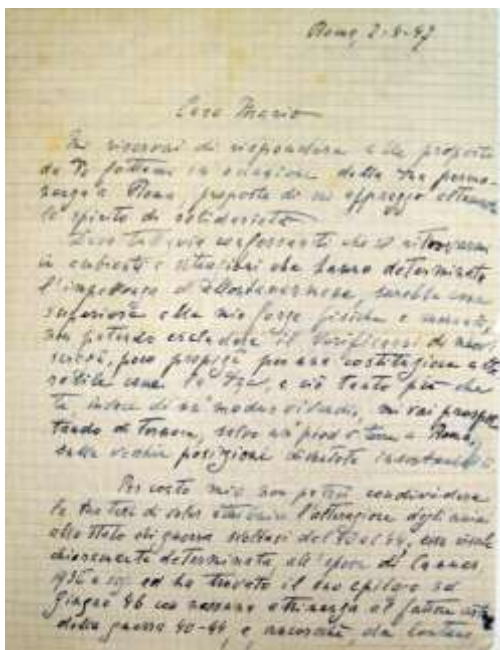 Roma, 2-8-47
Caro Mario
Mi riservai di rispondere alla proposta
da Te fattami in occasione della Tua perma
nenza a Roma, proposta di cui apprezzo
lo spirito di solidarietà
Devo tuttavia confessarti che il ritrovarmi
in ambienti e situazioni che hanno determinato
l'impellenza d'allontanarmene, sarebbe cosa
superiore alle mie forze fisiche e morali,
non potendo escludere il verificarsi di nuov
per una costituzione
come la Tua, e ciò tanto più che
Tu, invece di un modus vivendi, mi vai prospet
tando di tornare, salvo un Roma,
sulla vecchia posizione
Per conto mio non potrei condividere
la Tua tesi di voler l'alterazione degli animi
allo stato di guerra dal 40 al 44, essa
chiaramente determinata all'epoca di
1936 ed ha trovato il suo epilogo nel
giugno 46 con nessuna attinenza al fattore
della guerra 40-44, e da lontano